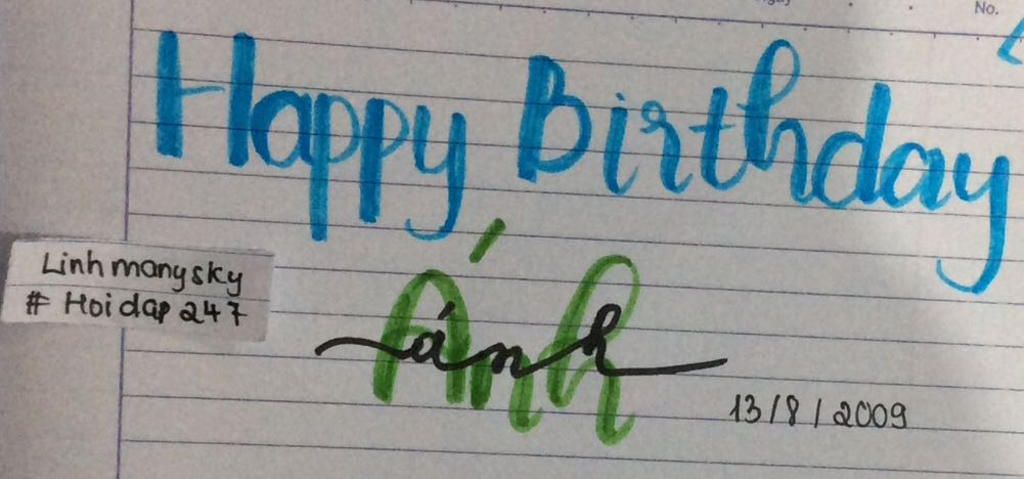 No.
Happy Birthday
Ánh
ánh
Linhmanysky
# Hoidap247
13/8/2009